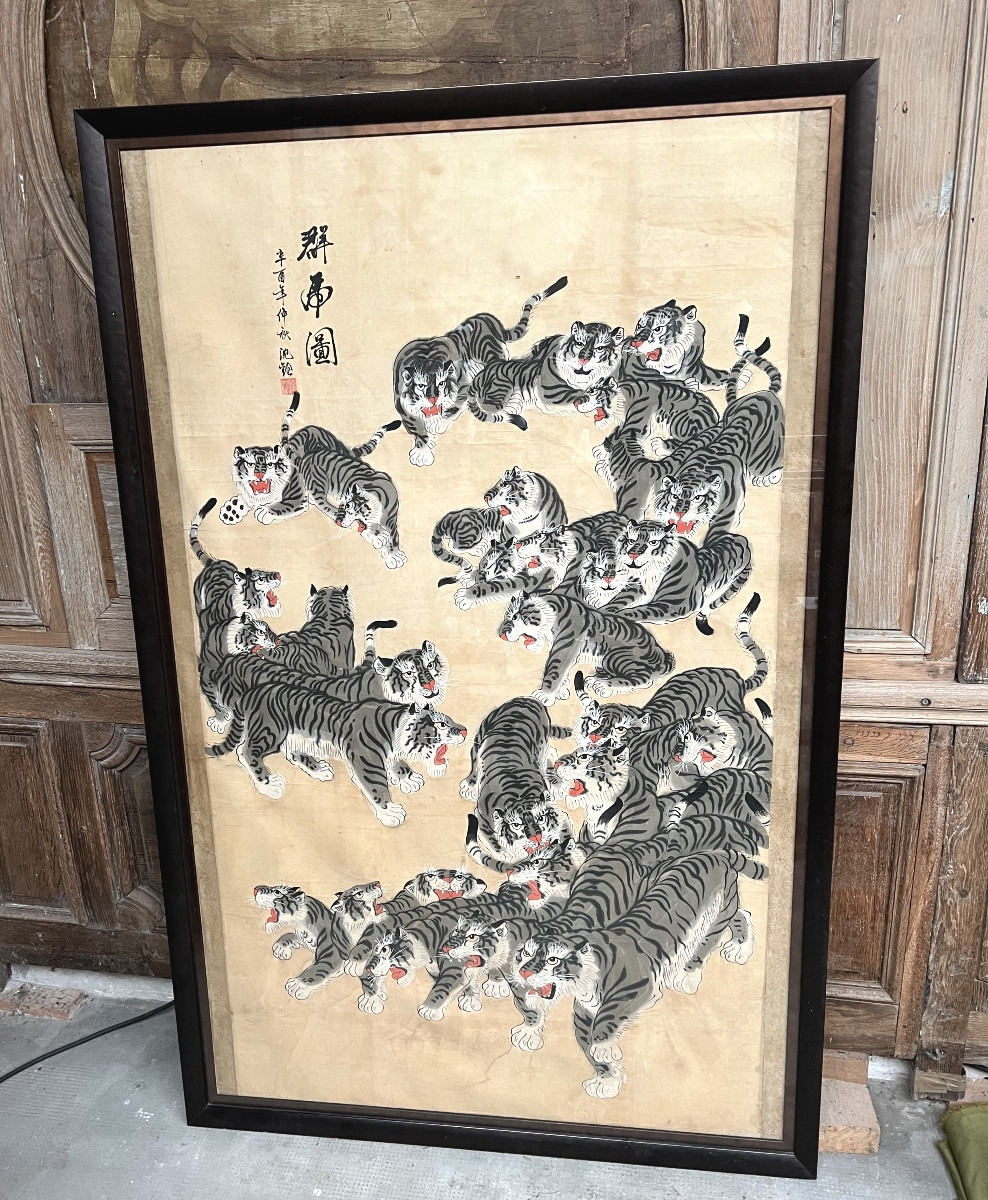 群虎圖
辛酉年仲秋